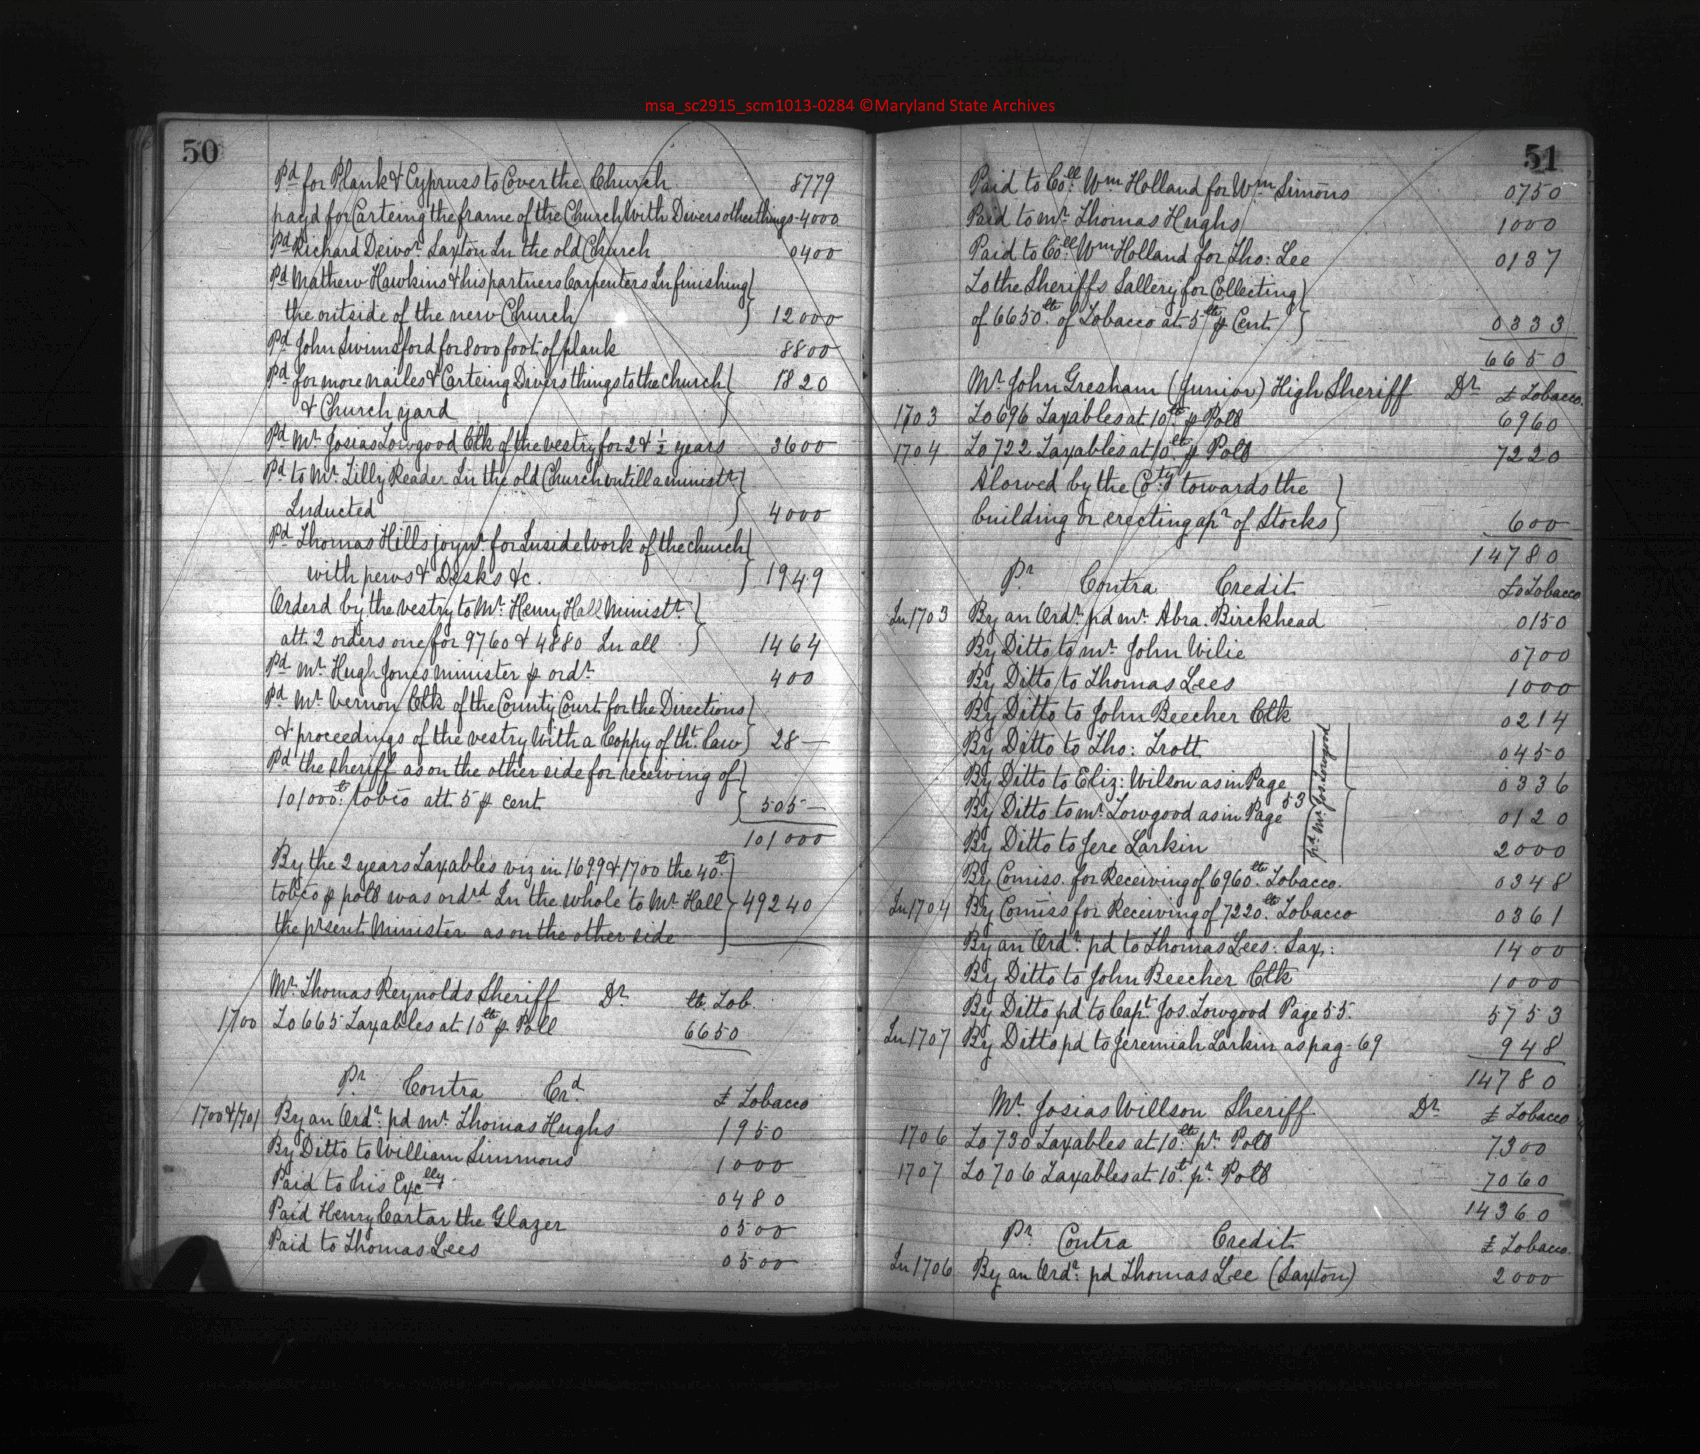 msa_sc2915_scm1013-0284 ©Maryland State Archives
50
Pd for Plank & Cypruss to Cover the Church 8779
payd for Carteing the frame of the Church with Divers other things - 4000
Pd Richard Deivor Saxton In the old Church 0400
Pd Mathew Hawkins & his partners Carpenters In finishing
the outside of the new Church 12000
Pd John Swinsford for 8000 foot of plank 8800
Pd for more nailes & Carteing Divers things to the church 1820
& Church yard
Pd Mr Josias Towgood Clk of the vestry for 2 & ½ years 3600
Pd to Mr Tilly Reader In the old Church untill a ministr
Inducted 4000
Pd Thomas Hills joynr for Inside work of the church
with pews & Desks &c. 1949
Orderd by the vestry to Mr Henry Hall Ministr
att 2 orders one for 9760 & 4880 In all 1464
Pd Mr Hugh Jones minister ⅌ ordr 400
Pd Mr Vernon Clk of the County Court for the Directions
& proceedings of the vestry with a Coppy of th. law 28 —
Pd the sheriff as on the other side for receiving of
101000 lt tobco att 5 ⅌ cent 505 —
101000
By the 2 years Taxables viz in 1699 & 1700 the 40 lt
tobco ⅌ poll was ordrd In the whole to Mr Hall 49240
the prsent Minister as on the other side
Mr Thomas Reynolds Sheriff Dr lt Tob.
1700 To 665 Taxables at 10lt ⅌ Poll 6650
Pr Contra Crd ł Tobacco
1700 & 1701 By an Ordr pd mr Thomas Hughs 1950
By Ditto to William Simmons 1000
Paid to his Excelly 0480
Paid Henry Cartar the Glazer 0500
Paid to Thomas Lees 0500
51
Paid to Coll Wm Holland for Wm Simons 0750
Paid to mr Thomas Hughs 1000
Paid to Coll Wm Holland for Tho: Lee 0137
To the Sheriffs Sallery for Collecting
of 6650lt of Tobacco at 5lt ⅌ Cent 0333
6650
Mr John Gresham (Junior) High Sheriff Dr ł Tobacco.
1703 To 696 Taxables at 10lt ⅌ Poll 6960
1704 To 722 Taxables at 10lt ⅌ Poll 7220
Alowed by the Coty towards the
building or erecting a pr of Stocks 600
14780
Pr Contra Credit ł Tobacco
In 1703 By an Ordr pd mr Abra. Birckhead 0150
By Ditto to mr John Wilie 0700
By Ditto to Thomas Lees 1000
By Ditto to John Beecher Clk 0214
By Ditto to Tho: Trott 0450
By Ditto to Eliz: Wilson as in Page 0336
By Ditto to mr Towgood as in Page 53 0120
By Ditto to Jere Larkin 2000
pd Mr Jos Towgood
By Comiss. for Receiving of 6960lt Tobacco. 0348
In 1704 By Comiss for Receiving of 7220lt Tobacco 0361
By an Ordr pd to Thomas Lees: Sax: 1400
By Ditto to John Beecher Clk 1000
By Ditto pd to Capt Jos. Towgood Page 55. 5753
In 1707 By Ditto pd to Jeremiah Larkin as pag - 69 948
14780
Mr Josias Willson Sheriff Dr ł Tobacco
1706 To 730 Taxables at 10lt pr Poll 7300
1707 To 706 Taxables at 10t pr Poll 7060
14360
Pr Contra Credit ł Tobacco.
In 1706 By an Ordr pd Thomas Lee (Saxton) 2000